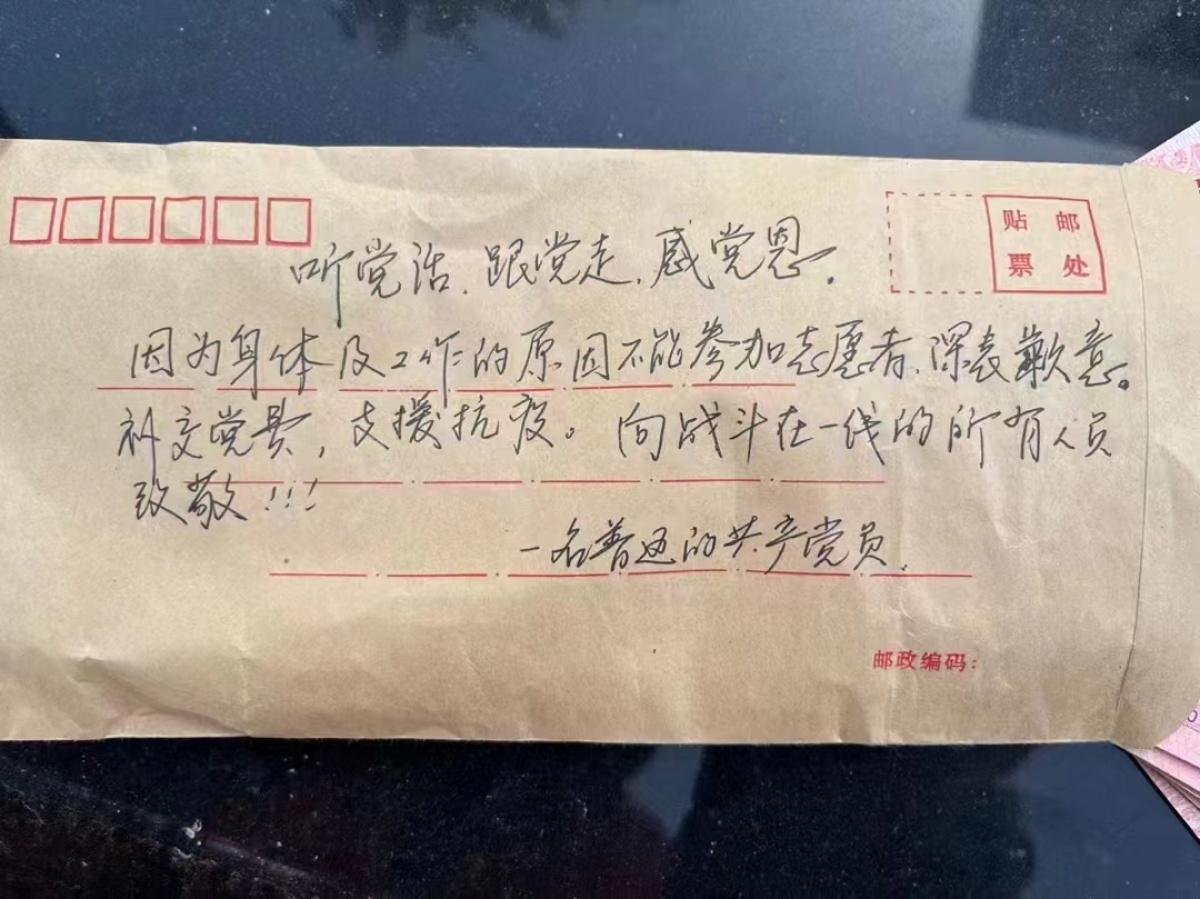 贴 邮
票 处
听党话、跟党走、感党恩。
因为身体及工作的原因不能参加志愿者、深表歉意。
补交党费，支援抗疫。向战斗在一线的所有人员
致敬!!!
一名普通的共产党员.
邮政编码: